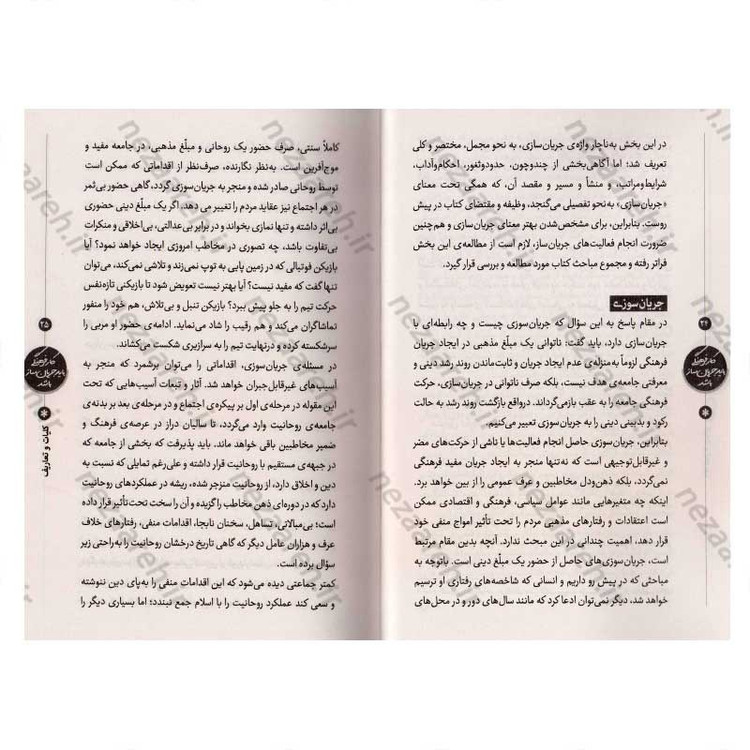 در این بخش به‌ناچار واژه‌ی جریان‌سازی، به نحو مجمل، مختصر و کلی
تعریف شد؛ اما آگاهی‌بخشی از چندوچون، حدودوثغور، احکام‌وآداب،
شرایط‌ومراتب، و منشأ و مسیر و مقصد آن، که همگی تحت معنای
«جریان‌سازی» به‌نحو تفصیلی می‌گنجد، وظیفه و مقتضای کتاب در پیش
روست. بنابراین، برای مشخص‌شدن بهتر معنای جریان‌سازی و هم‌چنین
ضرورت انجام فعالیت‌های جریان‌ساز، لازم است از مطالعه‌ی این بخش
فراتر رفته و مجموع مباحث کتاب مورد مطالعه و بررسی قرار گیرد.
جریان‌سوزی
در مقام پاسخ به این سؤال که جریان‌سوزی چیست و چه رابطه‌ای با
جریان‌سازی دارد، باید گفت: ناتوانی یک مبلغ مذهبی در ایجاد جریان
فرهنگی لزوماً به‌منزله‌ی عدم ایجاد جریان و ثابت‌ماندن روند رشد دینی و
معرفتی جامعه‌ی هدف نیست، بلکه صرف ناتوانی در جریان‌سازی، حرکت
فرهنگی جامعه را به عقب بازمی‌گرداند. درواقع بازگشت روند رشد به حالت
رکود و بدبینی دینی را به جریان‌سوزی تعبیر می‌کنیم.
بنابراین، جریان‌سوزی حاصل انجام فعالیت‌ها یا ناشی از حرکت‌های مضر
و غیرقابل‌توجیهی است که نه‌تنها منجر به ایجاد جریان مفید فرهنگی
نمی‌گردد، بلکه ذهن‌ودل مخاطبین و عرف عمومی را از بین خواهد برد.
اینکه چه متغیرهایی مانند عوامل سیاسی، فرهنگی و اقتصادی ممکن
است اعتقادات و رفتارهای مذهبی مردم را تحت تأثیر امواج منفی خود
قرار دهد، اهمیت چندانی در این مبحث ندارد. آنچه بدین مقام مرتبط
است، جریان‌سوزی‌های حاصل از حضور یک مبلغ دینی است. باتوجه به
مباحثی که در پیش رو داریم و انسانی که شاخصه‌های رفتاری او ترسیم
خواهد شد، دیگر نمی‌توان ادعا کرد که مانند سال‌های دور و در محل‌های
۲۴
کار فرهنگی
باید جریان ساز
باشد
کاملاً سنتی، صرف حضور یک روحانی و مبلّغ مذهبی، در جامعه مفید و
موج‌آفرین است. به‌نظر نگارنده، صرف‌نظر از اقداماتی که ممکن است
توسط روحانی صادر شده و منجر به جریان‌سوزی گردد، گاهی حضور بی‌ثمر
در هر اجتماع نیز عقاید مردم را تغییر می دهد. اگر یک مبلّغ دینی حضوری
بی‌اثر داشته و تنها نمازی بخواند و در برابر بی‌عدالتی، بی‌اخلاقی و منکرات
بی‌تفاوت باشد، چه تصوری در مخاطب امروزی ایجاد خواهد نمود؟ آیا
بازیکن فوتبالی که در زمین پایی به توپ نمی‌زند و تلاشی نمی‌کند، می‌توان
تنها گفت که مفید نیست؟ آیا بهتر نیست تعویض شود تا بازیکنی تازه‌نفس
حرکت تیم را به جلو پیش ببرد؟ بازیکن تنبل و بی‌تلاش، هم خود را منفور
تماشاگران می‌کند و هم رقیب را شاد می‌نماید. ادامه‌ی حضور او مربی را
سرشکسته کرده و درنهایت تیم را به سرازیری شکست می‌کشاند.
در مسئله‌ی جریان‌سوزی، اقداماتی را می‌توان برشمرد که منجر به
آسیب‌های غیرقابل‌جبران خواهد شد. آثار و تبعات آسیب‌هایی که تحت
این مقوله در مرحله‌ی اول بر پیکره‌ی اجتماع و در مرحله‌ی بعد بر بدنه‌ی
جامعه‌ی روحانیت وارد می‌گردد، تا سالیان دراز در عرصه‌ی فرهنگ و
ضمیر مخاطبین باقی خواهد ماند. باید پذیرفت که بخشی از جامعه که
در جبهه‌ی مستقیم با روحانیت قرار داشته و علی‌رغم تمایلی که نسبت به
دین و اخلاق دارد، از روحانیت منزجر شده، ریشه در عملکردهای روحانیت
دارد که در دوره‌ای ذهن مخاطب را گزیده و آن را سخت تحت تأثیر قرار داده
است؛ بی‌مبالاتی، تساهل، سخنان نابجا، اقدامات منفی، رفتارهای خلاف
عرف و هزاران عامل دیگر که گاهی تاریخ درخشان روحانیت را به‌راحتی زیر
سؤال برده است.
کمتر جماعتی دیده می‌شود که این اقدامات منفی را به‌پای دین ننوشته
و سعی کند عملکرد روحانیت را با اسلام جمع نبندد؛ اما بسیاری دیگر را
۲۵
کار فرهنگی
باید جریان ساز
باشد
کلیات و تعاریف
nezaareh.ir